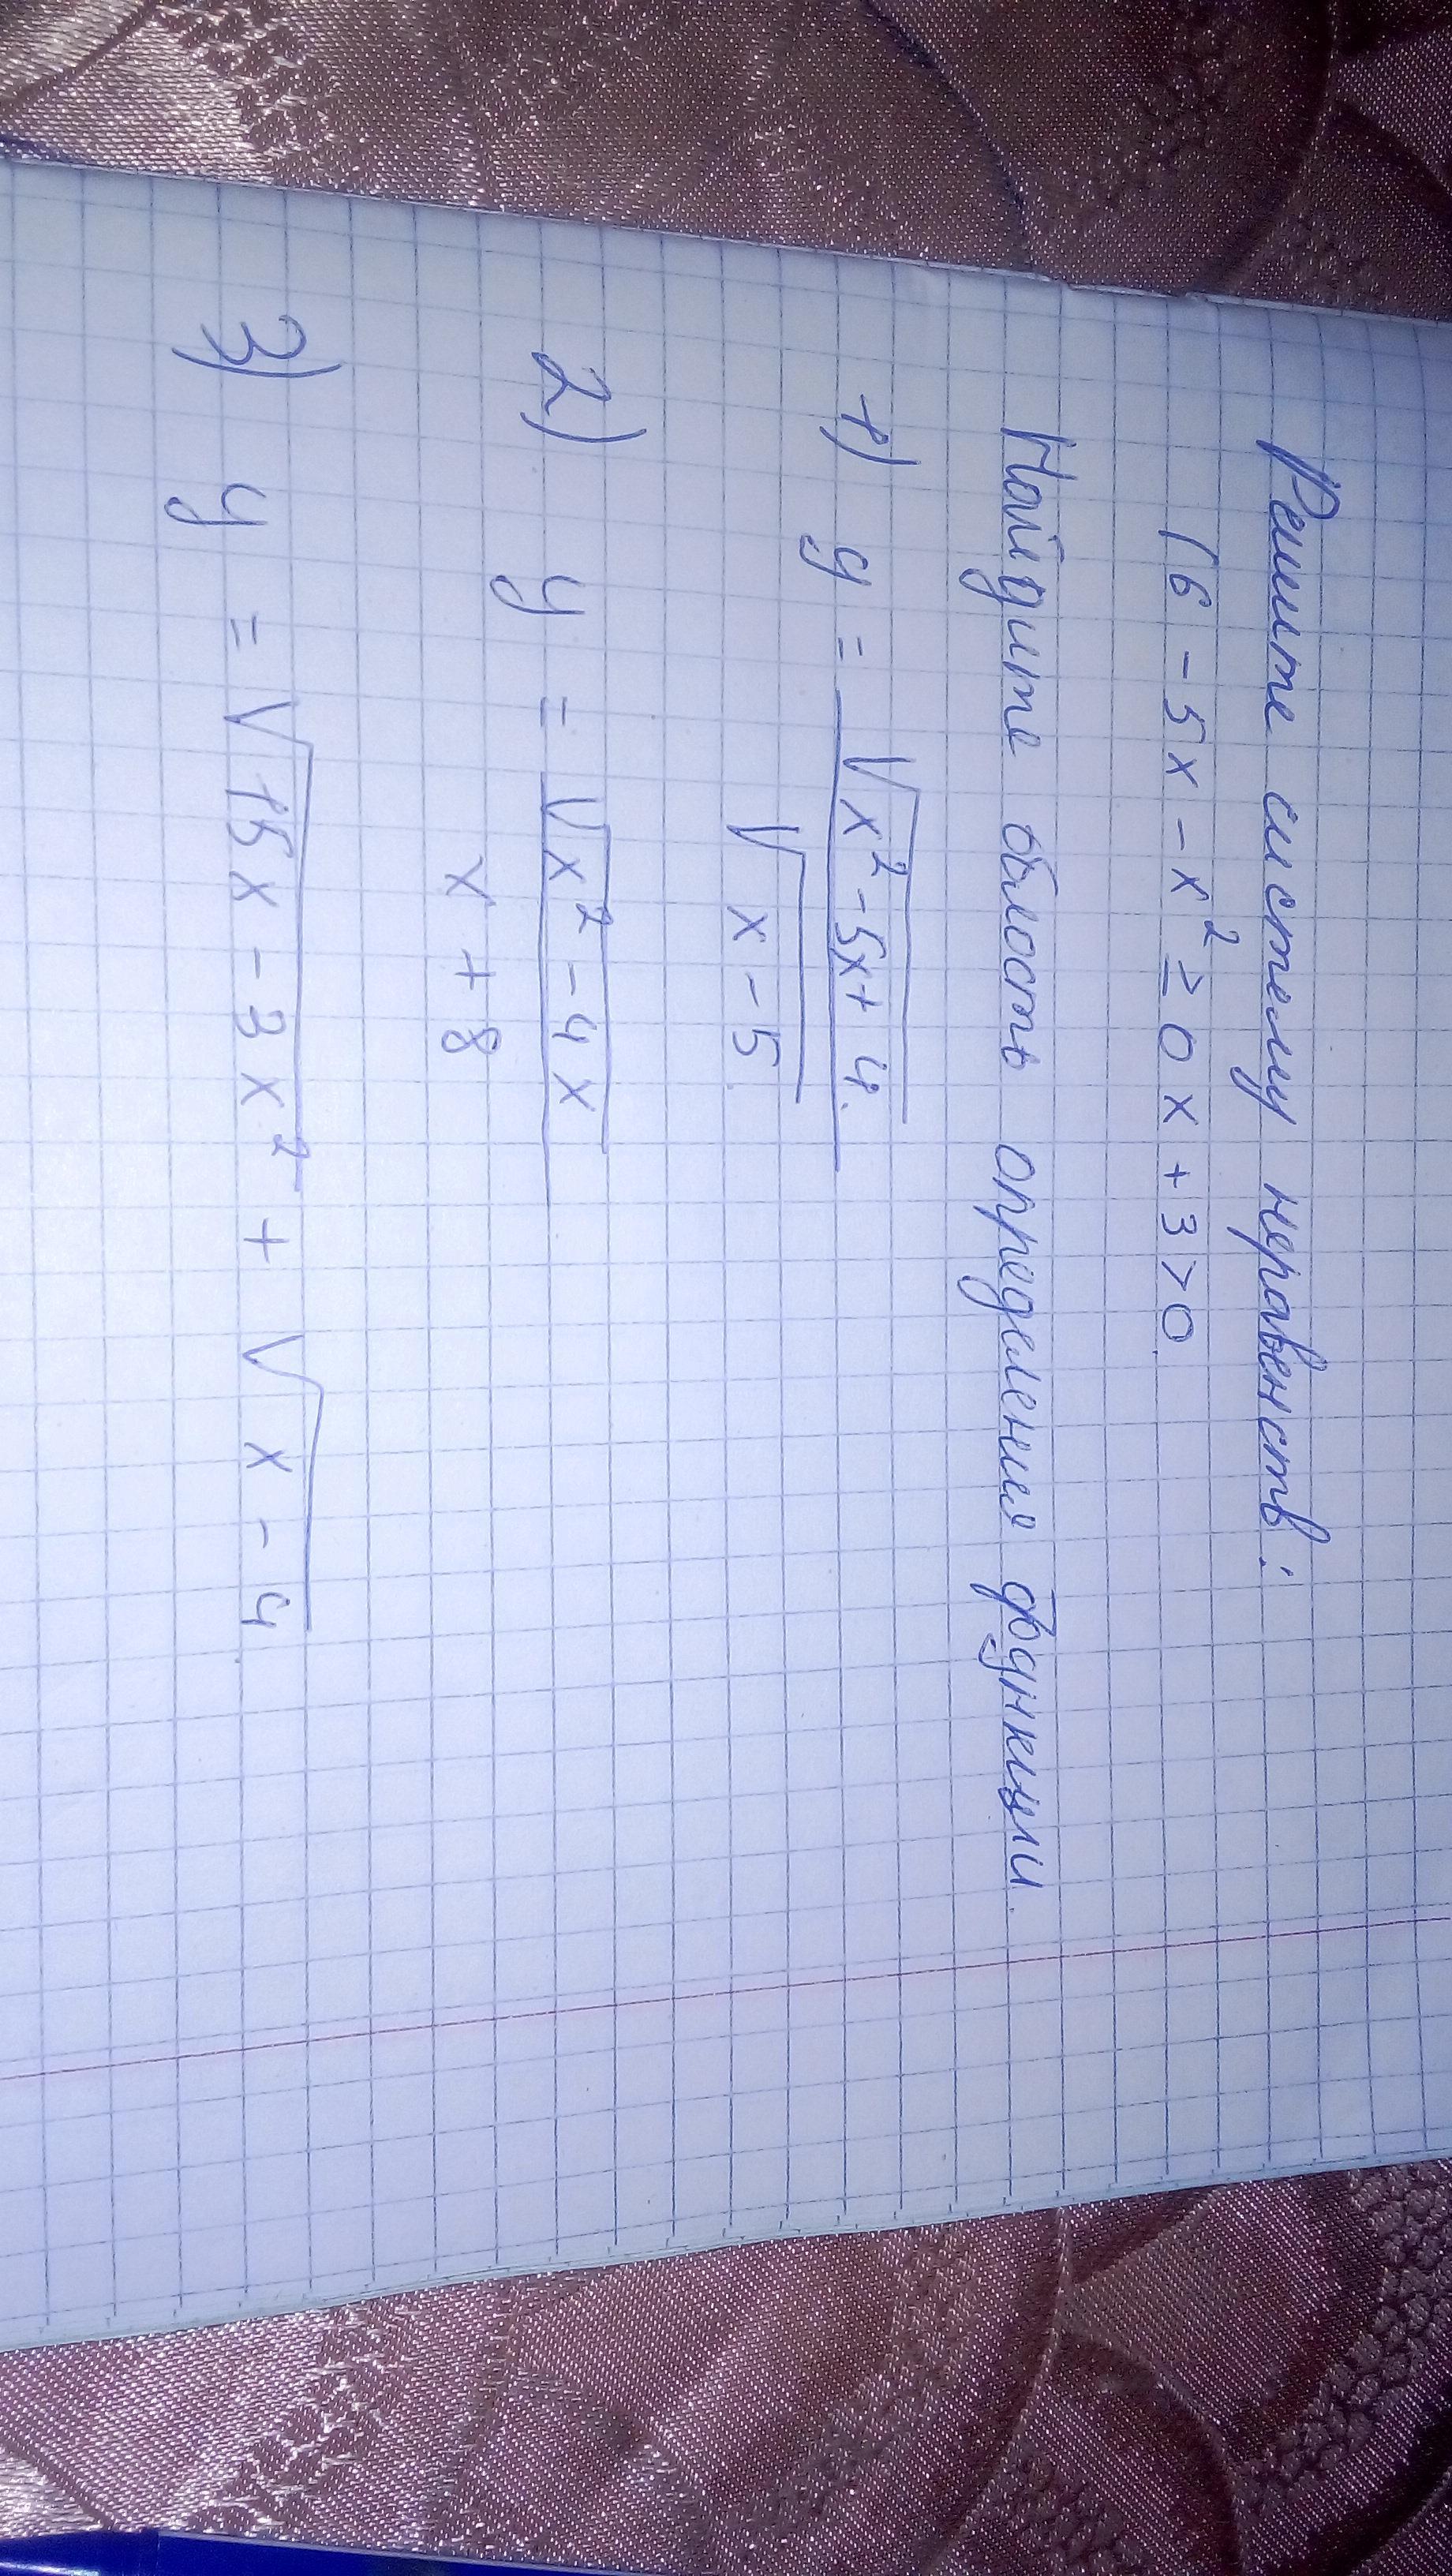 Решите систему неравенств:
{6 - 5x - x² ≥ 0 x + 3 > 0.
Найдите область определения функции.
1) y = √(x² - 5x + 4) / √(x - 5)
2) y = √(x² - 4x) / (x + 8)
3) y = √(15x - 3x²) + √(x - 4)